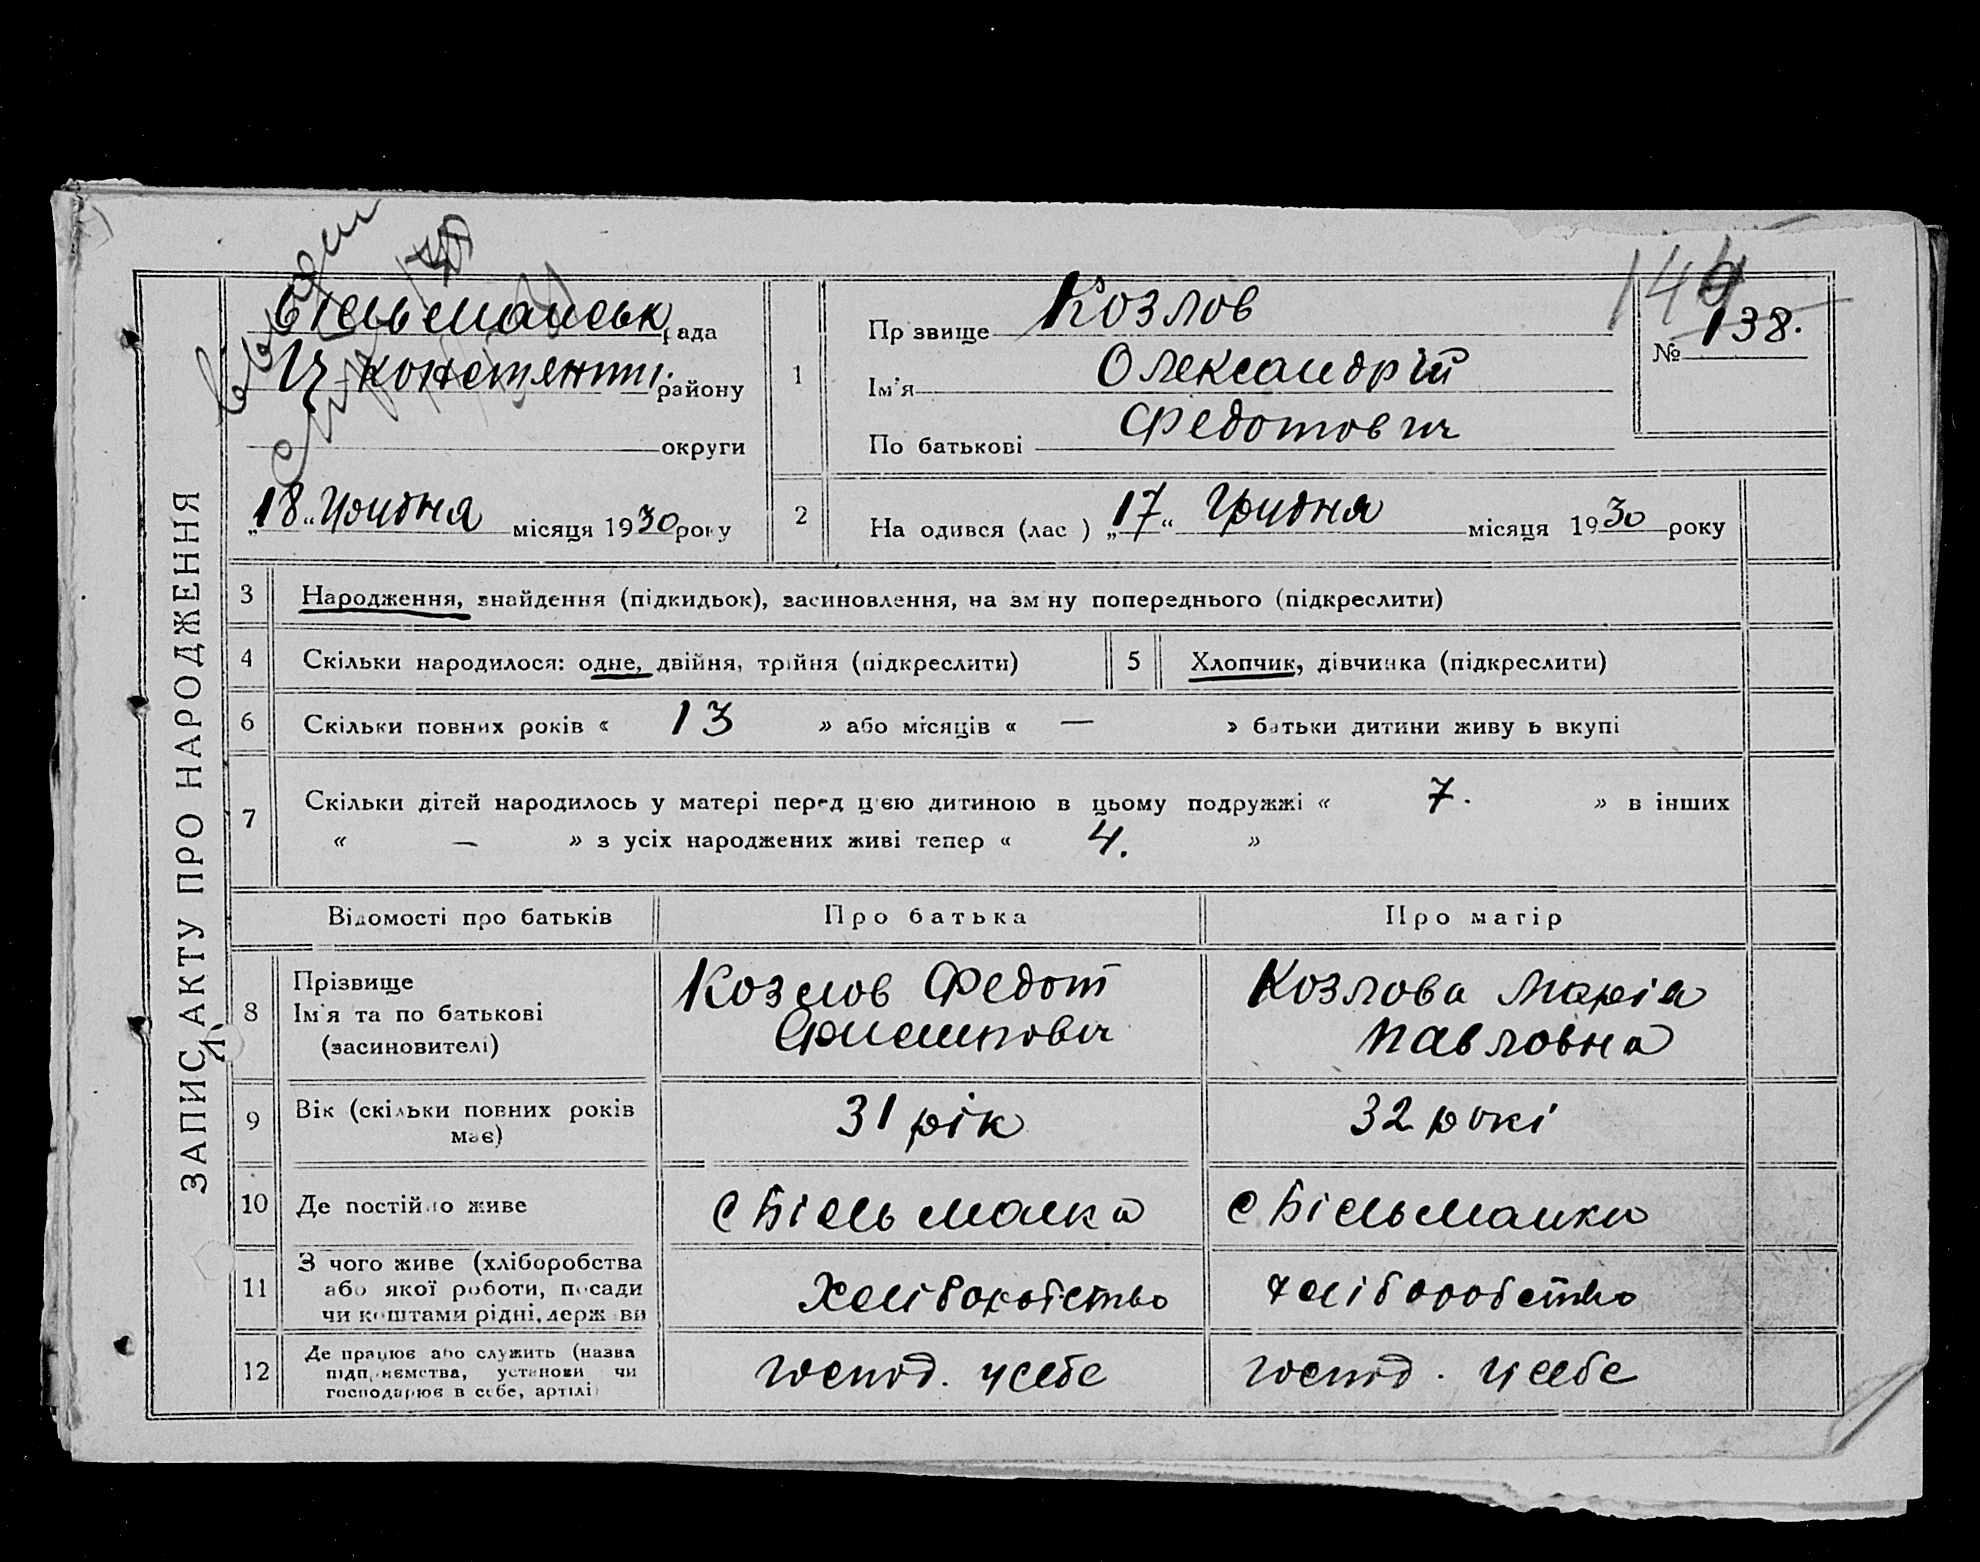 ЗАПИС АКТУ ПРО НАРОДЖЕННЯ
Більманськ рада
Ц-Констянти. району
округи
„18“ Грудня місяця 1930 року
1
Пр звище Козлов
Ім'я Олександрій
По батькові Федотович
144
№ 138.
2
На одився (лас ) „17“ Грудня місяця 1930 року
3 Народження, знайдення (підкидьок), засиновлення, на зм ну попереднього (підкреслити)
4 Скільки народилося: одне, двійня, трійня (підкреслити)
5 Хлопчик, дівчинка (підкреслити)
6 Скільки повних років « 13 » або місяців « — » батьки дитини живу ь вкупі
7 Скільки дітей народилось у матері перед цією дитиною в цьому подружжі « 7. » в інших
« — » з усіх народжених живі тепер « 4. »
Відомості про батьків Про батька Про матір
8 Прізвище
Ім'я та по батькові
(засиновителі)
Козлов Федот
Филипович
Козлова Марія
Павловна
9 Вік (скільки повних років
має)
31 рік
32 рокі
10 Де постійно живе
с Більманка
с Більманки
11 З чого живе (хліборобства
або якої роботи, посади
чи коштами рідні, держ ви
Хліборобство
хліборобство
12 Де працює або служить (назва
підприємства, установи чи
господарює в себе, артілі
господ. у себе
господ. у себе